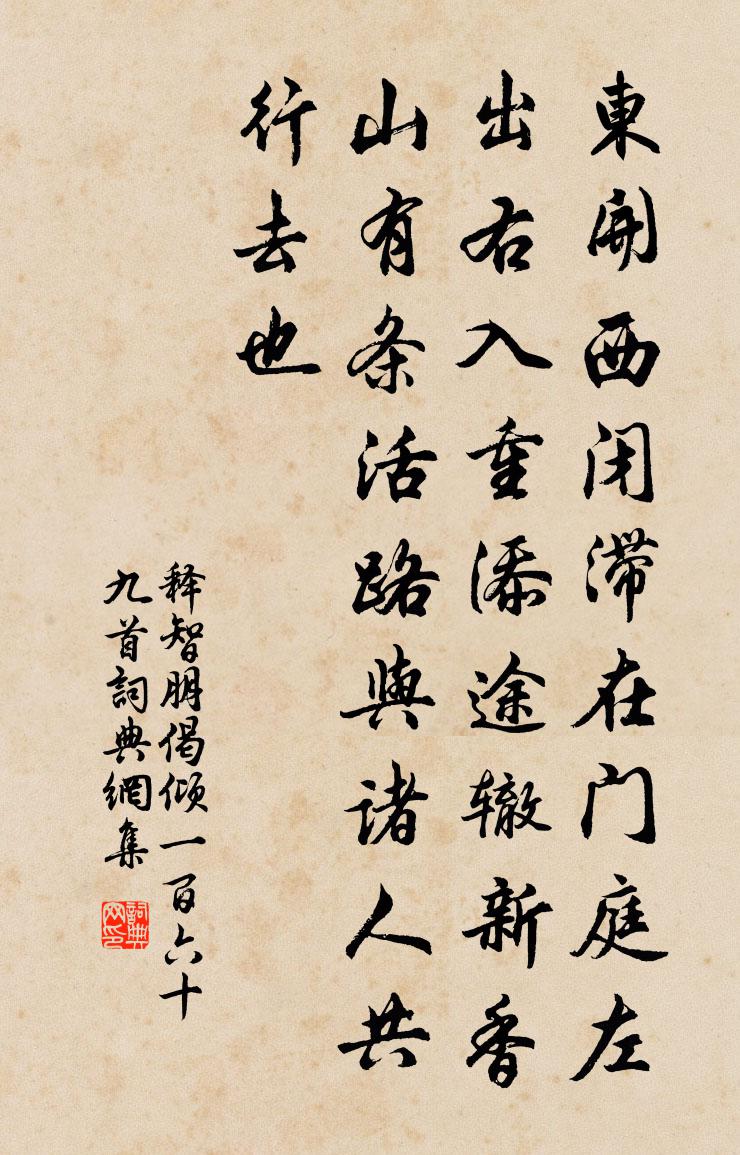 東開西闭滞在门庭左
出右入重添途辙新香
山有条活路與诸人共
行去也
释智朋偈倾一百六十
九首詞典網集
詞典网印